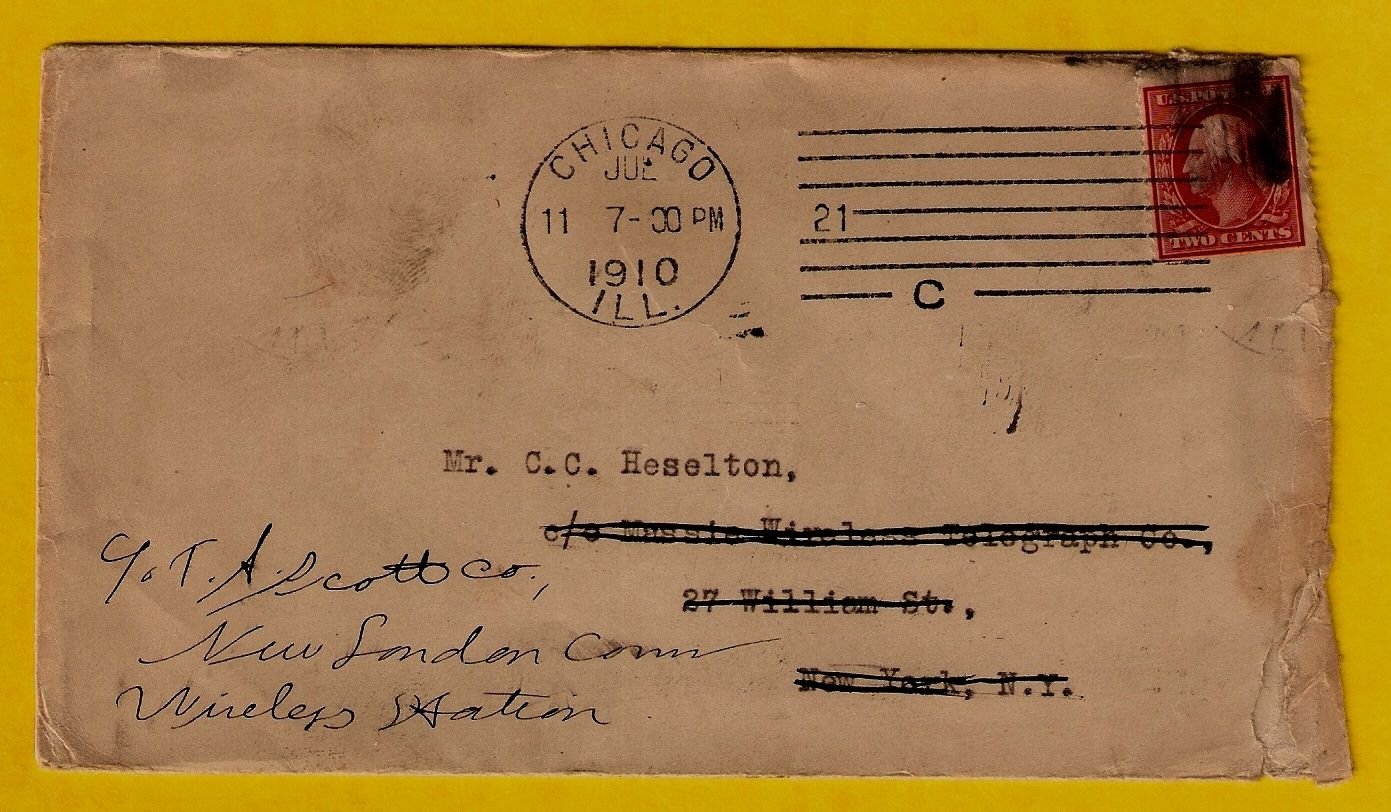 U.S. POSTAGE
TWO CENTS
CHICAGO
JUL
11 7-00 PM
1910
ILL.
21
C
Mr. C.C. Heselton,
c/o Massie Wireless Telegraph Co.,
27 William St.,
New York, N.Y.
T. A. Scott Co.,
New London Conn
Wireless Station